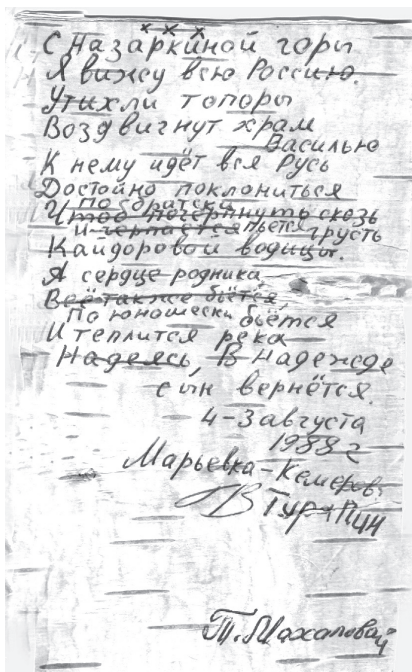 х х х
С Назаркиной горы
Я вижу всю Россию.
Утихли топоры
Воздвигнут храм
Василью
К нему идёт вся Русь
Достойно поклониться
По братски
Чтоб почерпнуть сквозь
И черпается пьётся грусть
Кайдоровой водицы.
А сердце родника
Всё также бьётся,
По юношески бьётся
И теплится река
Надеясь, В надежде
сын вернётся.
4-3 августа
1988 г
Марьевка-Кемеров.
В Гурта Пин
Т. Махаловай